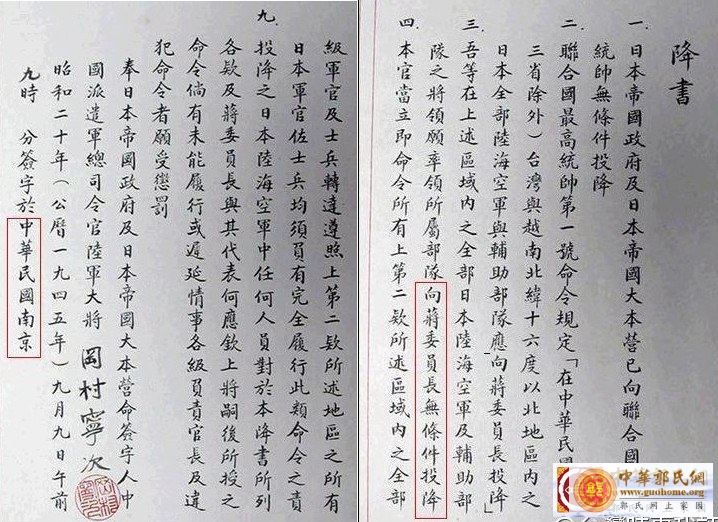 降書
一.日本帝國政府及日本帝國大本營已向聯合國
統帥無條件投降
二.聯合國最高統帥第一號命令規定「在中華民國
三省除外）台灣與越南北緯十六度以北地區內之
日本全部陸海空軍與輔助部隊應向蔣委員長投降」
三.吾等在上述區域內之全部日本陸海空軍及輔助部
隊之將領願率領所屬部隊向蔣委員長無條件投降
四.本官當立即命令所有上第二欵所述區域內之全部
級軍官及士兵轉達遵照上第二欵所述地區之所有
日本軍官佐士兵均須負有完全履行此類命令之責
九.投降之日本陸海空軍中任何人員對於本降書所列
各欵及蔣委員長與其代表何應欽上將嗣後所授之
命令倘有未能履行或遲延情事各級負責官長及違
犯命令者願受懲罰
奉日本帝國政府及日本帝國大本營命簽字人中
國派遣軍總司令官陸軍大將 岡村寧次
昭和二十年（公曆一九四五年）九月九日午前
九時 分簽字於中華民國南京
中華郭氏網
www.guohome.org
郭氏網上家園